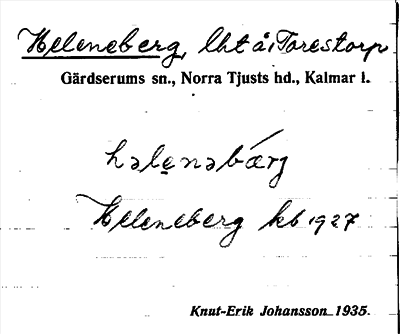 Heleneberg, lht å Torestorp
Gärdserums sn., Norra Tjusts hd., Kalmar l.
hələnəbærg
Heleneberg kb 1927
Knut-Erik Johansson 1935.